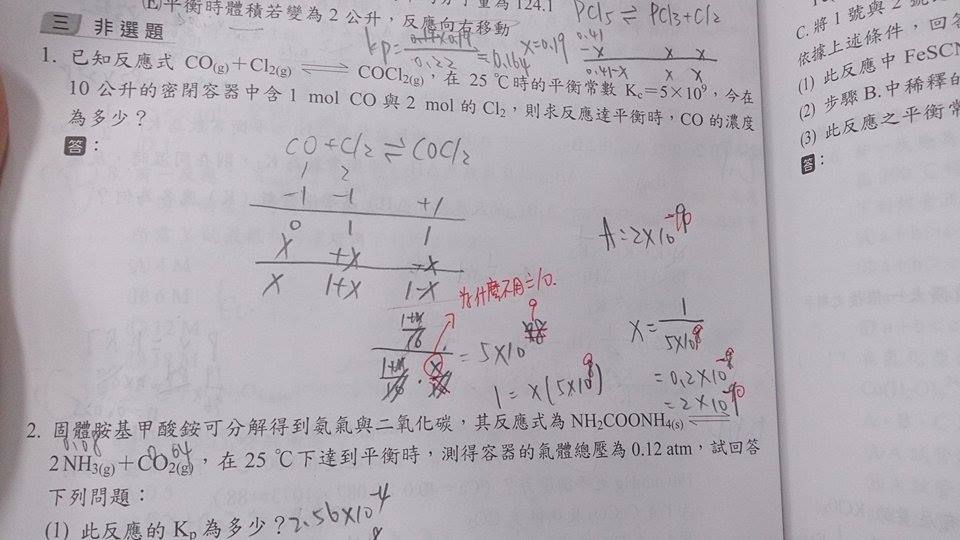 (E)平衡時體積若變為 2 公升,反應向右移動
PCl5 ⇌ PCl3 + Cl2
三 非選題
Kp = 0.19×0.19 / 0.22 = 0.164 x=0.19
0.41
-x x x
0.41-x x x
1. 已知反應式 CO(g)+Cl2(g) ⇌ COCl2(g),在 25 ℃時的平衡常數 Kc=5×10⁹,今在
10 公升的密閉容器中含 1 mol CO 與 2 mol 的 Cl2,則求反應達平衡時,CO 的濃度
為多少?
答:
CO + Cl2 ⇌ COCl2
1 2
-1 -1 +1
0 1 1
x +x -x
x 1+x 1-x
A=2×10
為什麼不用÷10.
= 5×10⁹
1 = x(5×10⁹)
x = 1 / 5×10⁹
= 0.2×10⁻⁹
= 2×10⁻¹⁰
2. 固體胺基甲酸銨可分解得到氨氣與二氧化碳,其反應式為 NH2COONH4(s) ⇌
0.08 0.04
2 NH3(g)+CO2(g),在 25 ℃下達到平衡時,測得容器的氣體總壓為 0.12 atm,試回答
下列問題:
(1) 此反應的 Kp 為多少?2.56×10⁻⁴
C. 將 1 號與 2 號
依據上述條件,回答
(1) 此反應中 FeSCN
(2) 步驟 B.中稀釋的
(3) 此反應之平衡常
答: